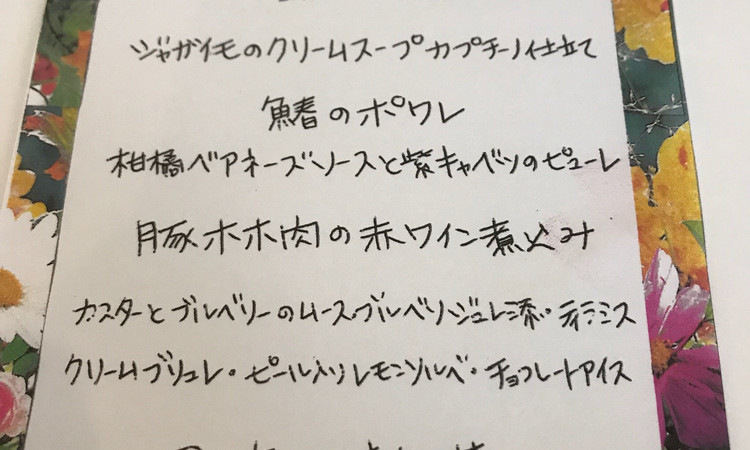 ジャガイモのクリームスープカプチーノ仕立て
鰆のポワレ
柑橘ベアネーズソースと紫キャベツのピューレ
豚ホホ肉の赤ワイン煮込み
カスターとブルベリーのムース・ブルベリージュレ添・ティラミス
クリームブリュレ・ピール入りレモンソルベ・チョコレートアイス